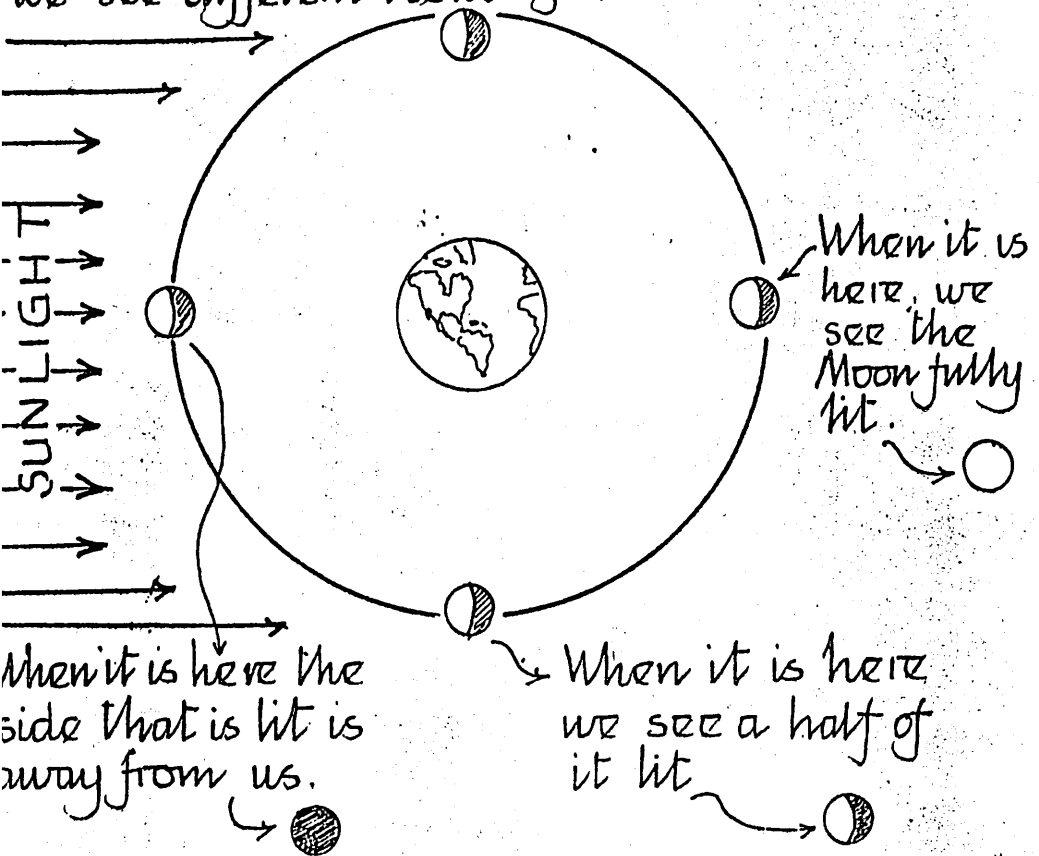 we see different
SUNLIGHT
When it is
here, we
see the
Moon fully
lit.
When it is here the
side that is lit is
away from us.
When it is here
we see a half of
it lit